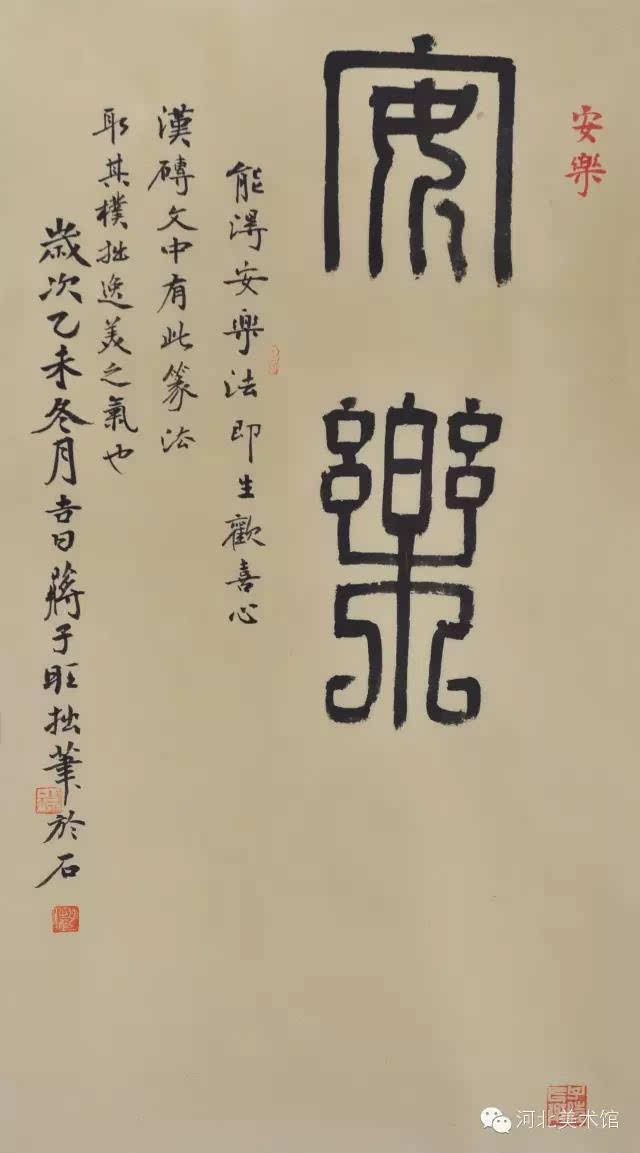 安樂
安樂
能得安樂法即生歡喜心
漢磚文中有此篆法
取其樸拙逸美之氣也
歲次乙未冬月吉日蔣子旺拙筆於石
河北美术馆